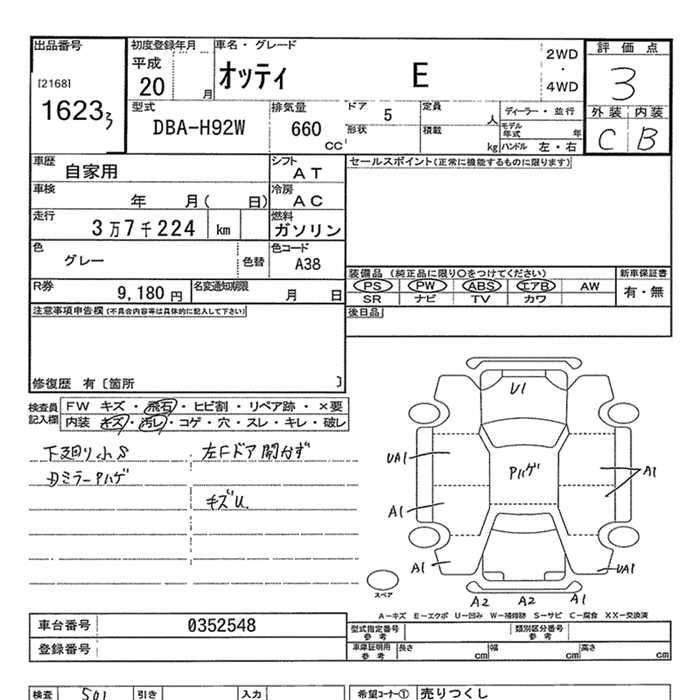 出品番号
[2168]
1623 3
初度登録年月
平成
20 月
車名・グレード
オッティ E
2WD
・
4WD
評価点
3
外装 内装
C B
型式
DBA-H92W
排気量
660
CC
ドア 5
形状
定員 人
積載 kg
ディーラー・並行
モデル年式 年
ハンドル 左・右
車歴
自家用
シフト
AT
車検
年 月( 日)
冷房
AC
走行
3万7千224 km
燃料
ガソリン
色
グレー
色替
色コード
A38
R券
9,180円
名変通知期限
月 日
セールスポイント(正常に機能するものに限ります)
装備品 (純正品に限り○をつけてください)
PS PW ABS エアB AW
SR ナビ TV カワ
新車保証書
有・無
後日品
注意事項申告欄(不具合内容等は具体的に記入して下さい)
修復歴 有〔箇所 〕
検査員
記入欄
FW キズ・飛石・ヒビ割・リペア跡・×要
内装 キズ・汚レ・コゲ・穴・スレ・キレ・破レ
下廻り小S
左Fドア開かず
ミラーPハゲ
キズU
U1
UA1
Pハゲ
A1
A1
A1
UA1
A2 A2 A1
スペア
A-キズ E-エクボ U-凹み W-補修跡 S-サビ C-腐食 XX-交換済
車台番号
0352548
登録番号
型式指定番号
参考
類別区分番号
参考
車庫証明用
参考
長さ cm
幅 cm
高さ cm
検査 501
引き
入力
希望コーナー① 売りつくし